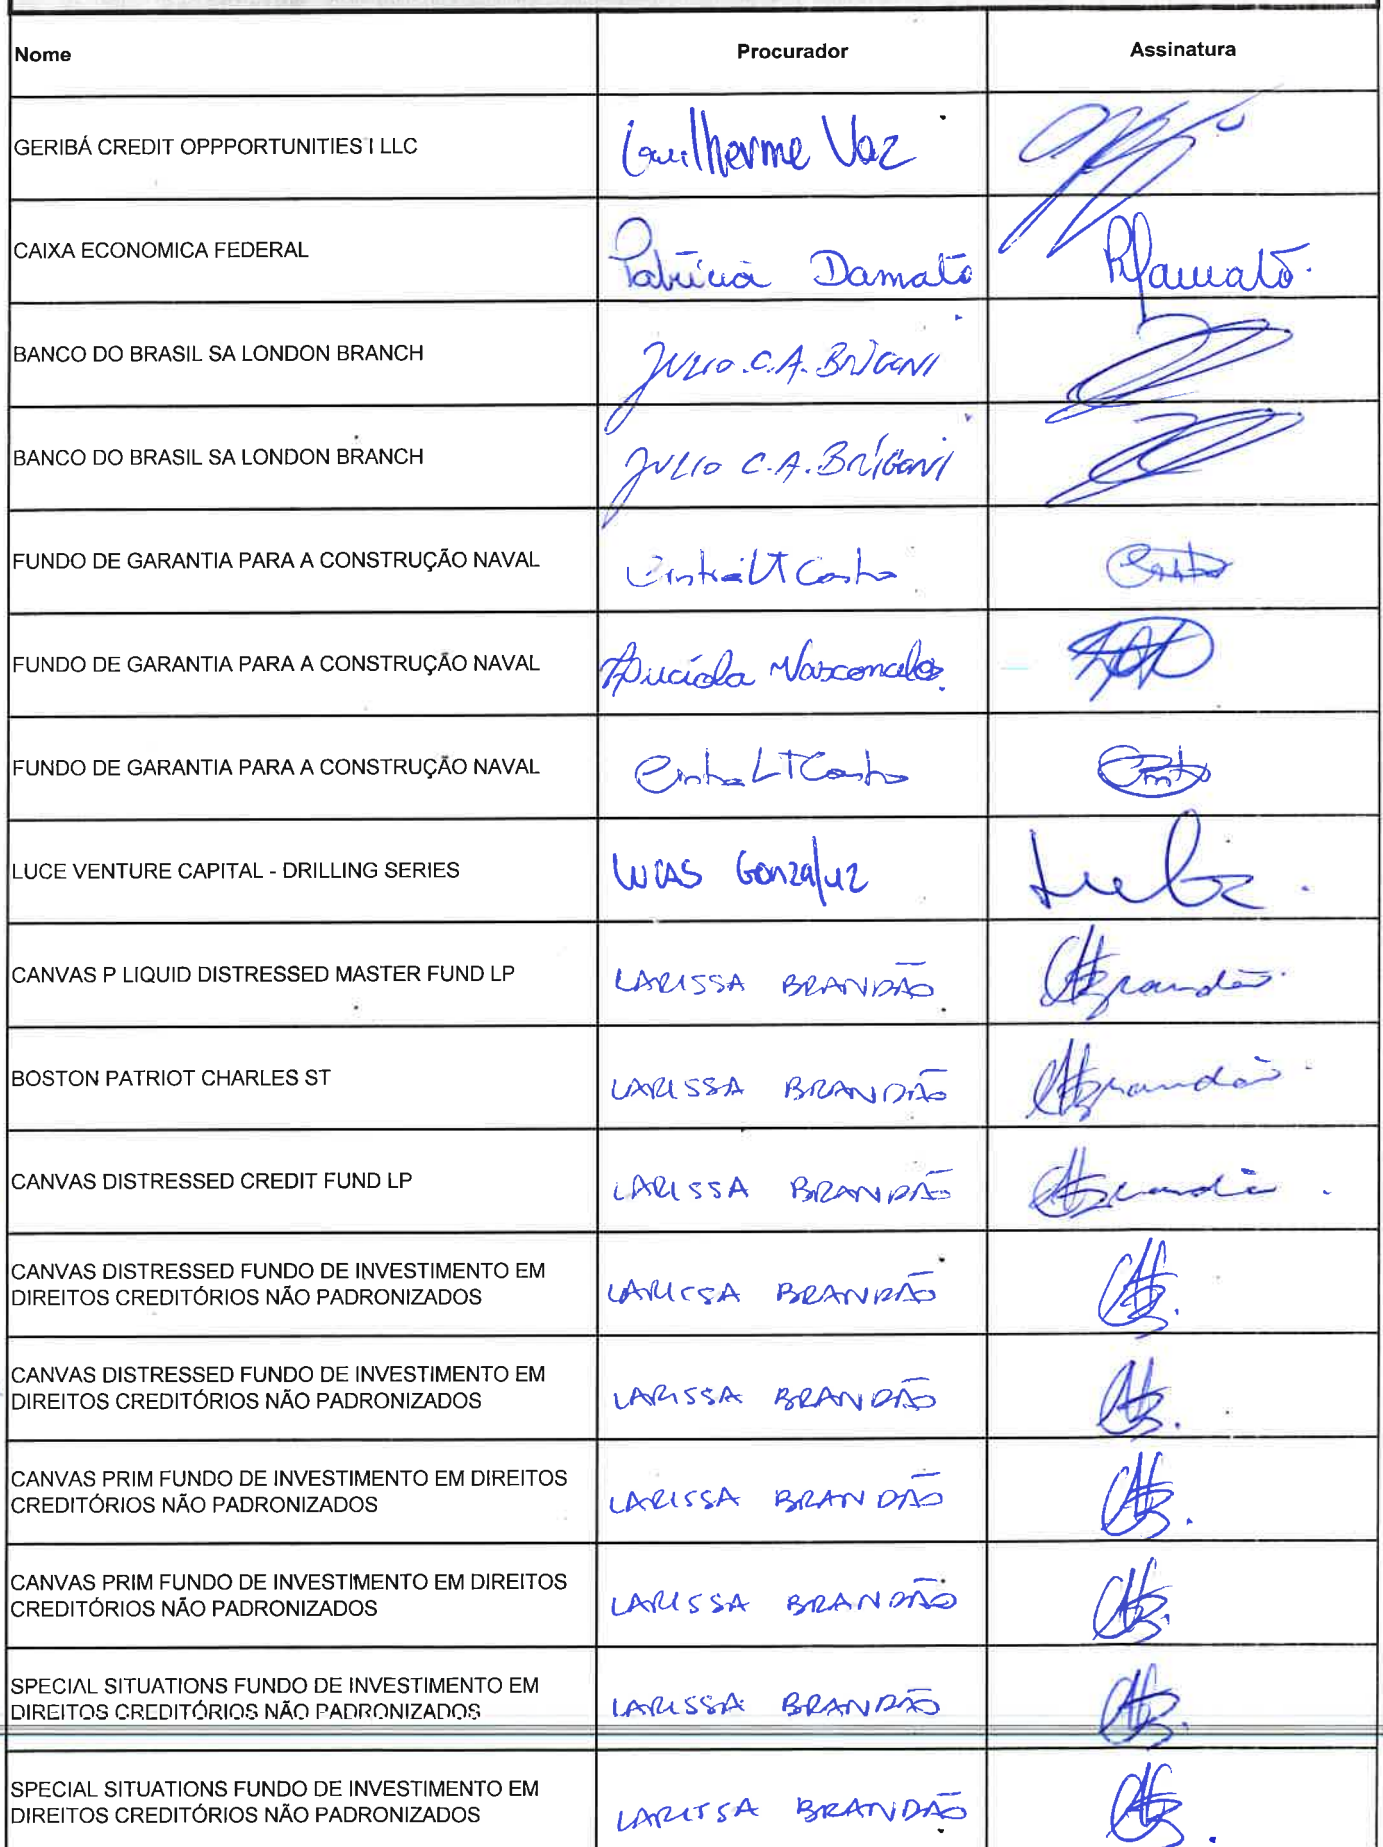 Nome Procurador Assinatura
GERIBÁ CREDIT OPPPORTUNITIES I LLC Guilherme Vaz
CAIXA ECONOMICA FEDERAL Patrícia Damato PDamato.
BANCO DO BRASIL SA LONDON BRANCH JULIO.C.A. BRIGANI
BANCO DO BRASIL SA LONDON BRANCH JULIO C.A. BRIGANI
FUNDO DE GARANTIA PARA A CONSTRUÇÃO NAVAL LT Costa
FUNDO DE GARANTIA PARA A CONSTRUÇÃO NAVAL Vasconcelos
FUNDO DE GARANTIA PARA A CONSTRUÇÃO NAVAL LT Costa
LUCE VENTURE CAPITAL - DRILLING SERIES LUCAS
CANVAS P LIQUID DISTRESSED MASTER FUND LP LARISSA BRANDÃO
BOSTON PATRIOT CHARLES ST LARISSA BRANDÃO
CANVAS DISTRESSED CREDIT FUND LP LARISSA BRANDÃO
CANVAS DISTRESSED FUNDO DE INVESTIMENTO EM
DIREITOS CREDITÓRIOS NÃO PADRONIZADOS LARISSA BRANDÃO
CANVAS DISTRESSED FUNDO DE INVESTIMENTO EM
DIREITOS CREDITÓRIOS NÃO PADRONIZADOS LARISSA BRANDÃO
CANVAS PRIM FUNDO DE INVESTIMENTO EM DIREITOS
CREDITÓRIOS NÃO PADRONIZADOS LARISSA BRANDÃO
CANVAS PRIM FUNDO DE INVESTIMENTO EM DIREITOS
CREDITÓRIOS NÃO PADRONIZADOS LARISSA BRANDÃO
SPECIAL SITUATIONS FUNDO DE INVESTIMENTO EM
DIREITOS CREDITÓRIOS NÃO PADRONIZADOS LARISSA BRANDÃO
SPECIAL SITUATIONS FUNDO DE INVESTIMENTO EM
DIREITOS CREDITÓRIOS NÃO PADRONIZADOS LARISSA BRANDÃO